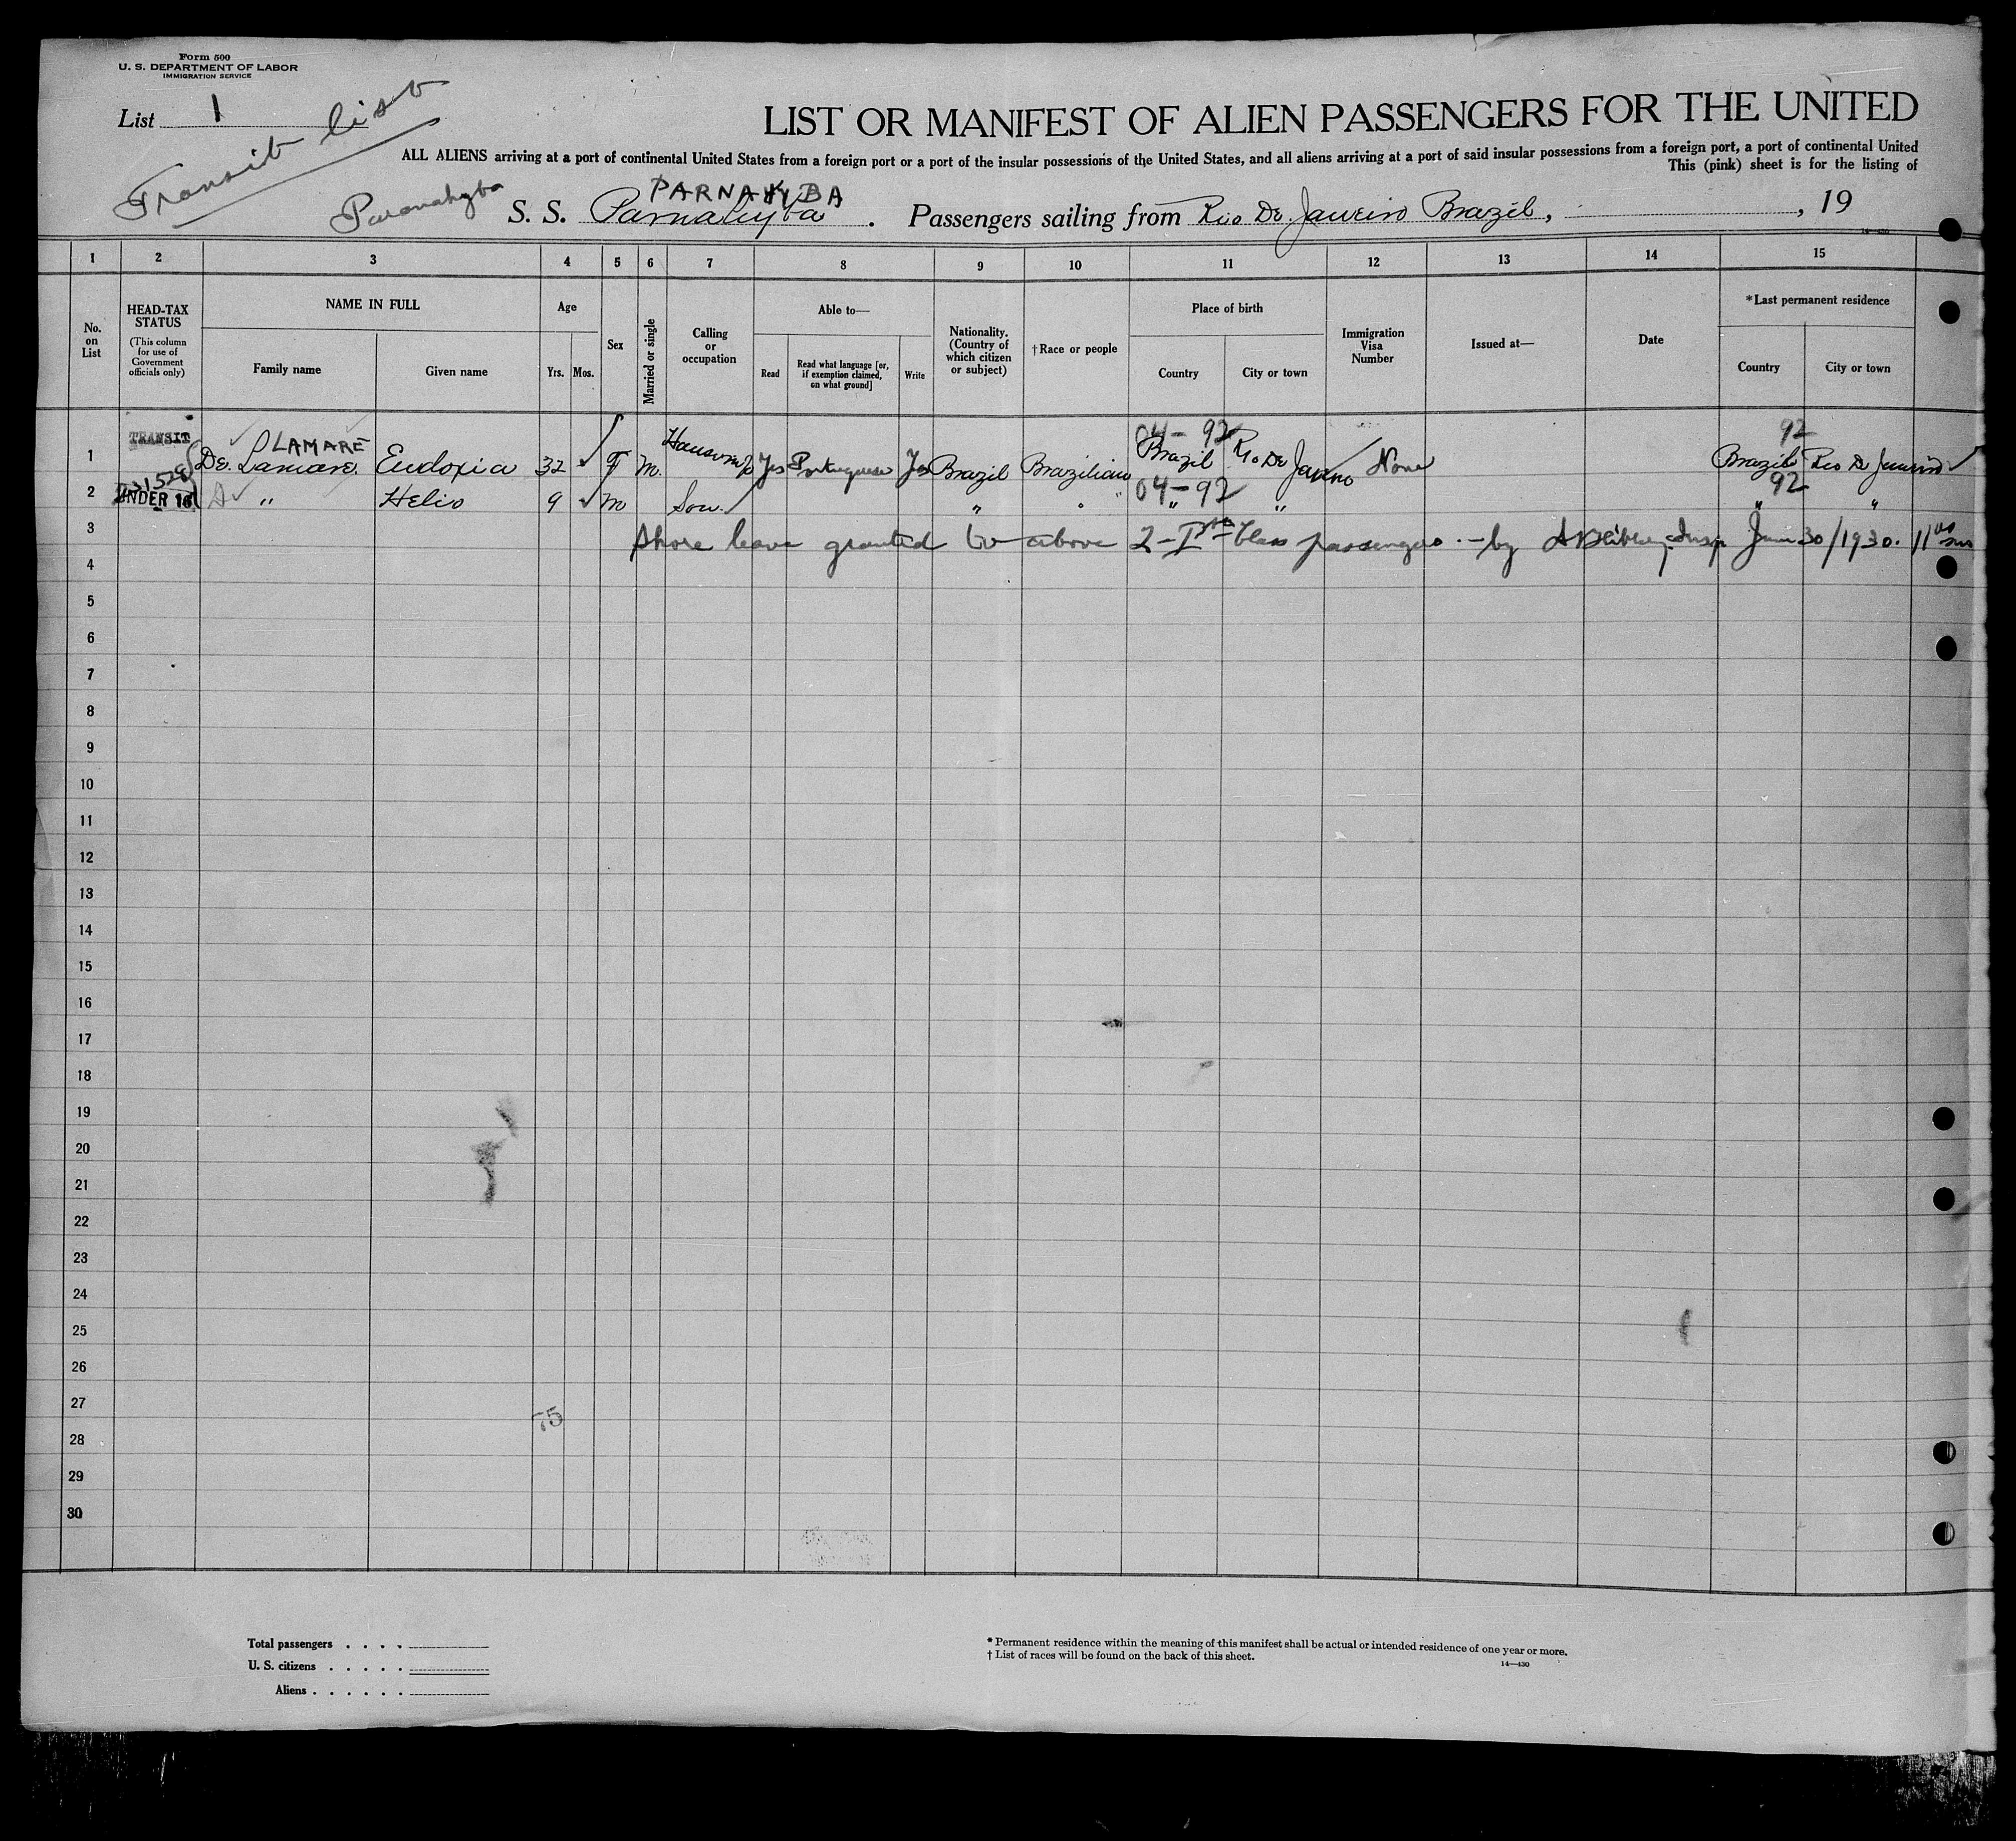 Form 500
U. S. DEPARTMENT OF LABOR
IMMIGRATION SERVICE
List 1
Transit list
LIST OR MANIFEST OF ALIEN PASSENGERS FOR THE UNITED
ALL ALIENS arriving at a port of continental United States from a foreign port or a port of the insular possessions of the United States, and all aliens arriving at a port of said insular possessions from a foreign port, a port of continental United
This (pink) sheet is for the listing of
PARNAHYBA
Paranahyba S. S. Parnahyba . Passengers sailing from Rio De Janeiro Brazil, , 19
14—430
1 2 3 4 5 6 7 8 9 10 11 12 13 14 15
No. on List
HEAD-TAX STATUS
(This column for use of Government officials only)
NAME IN FULL
Family name
Given name
Age
Yrs.
Mos.
Sex
Married or single
Calling or occupation
Able to—
Read
Read what language [or, if exemption claimed, on what ground]
Write
Nationality. (Country of which citizen or subject)
†Race or people
Place of birth
Country
City or town
Immigration Visa Number
Issued at—
Date
*Last permanent residence
Country
City or town
TRANSIT LAMARE 04-92 92
1 De Lamare Eudoxia 32 F M. Yes Portuguese Yes Brazil Brazilian Brazil Rio De Janeiro None Brazil Rio De Janeiro
04-92 92
2 UNDER 16 " Helio 9 m Son " " " " " "
3 Shore leave granted to above 2-1st Class passengers.- by Insp Jun 30/1930. 11
4
5
6
7
8
9
10
11
12
13
14
15
16
17
18
19
20
21
22
23
24
25
26
27
75
28
29
30
Total passengers . . . .
U. S. citizens . . . . .
Aliens . . . . . .
* Permanent residence within the meaning of this manifest shall be actual or intended residence of one year or more.
† List of races will be found on the back of this sheet.
14—430